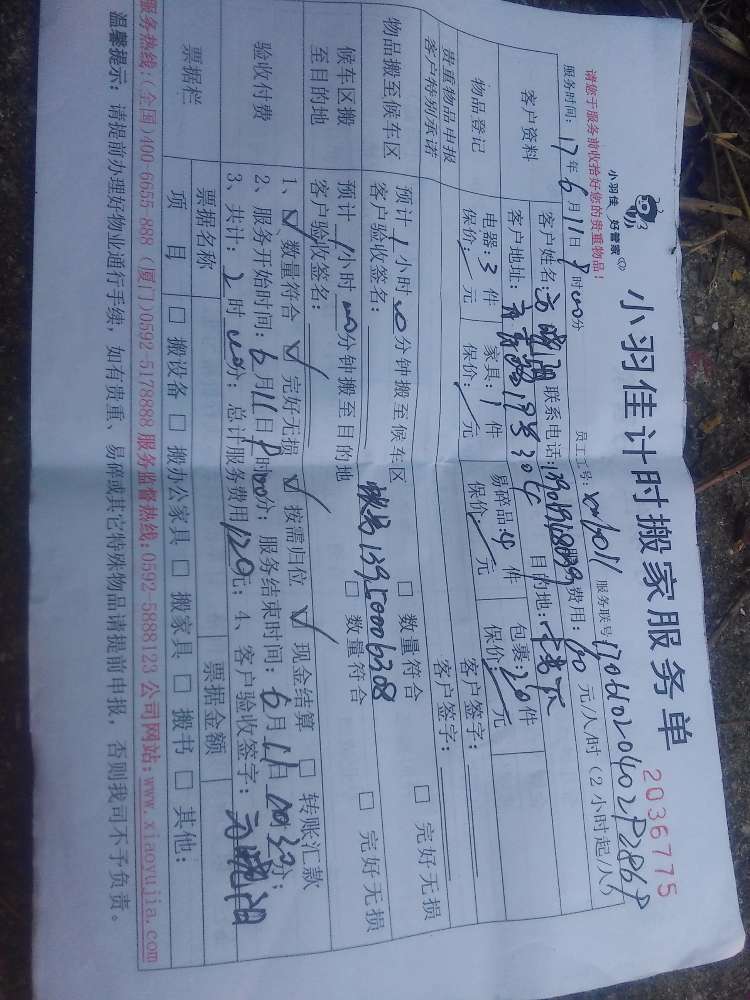 小羽佳 好管家
小羽佳计时搬家服务单
2036775
请您于服务前收拾好您的贵重物品!
服务时间: 17年6月11日 时00分 员工工号: 服务联号:
客户资料
客户姓名: 联系电话: 费用: 元/人/时(2小时起/人)
客户地址: 目的地:
物品登记
电器:3件 家具:1件 易碎品:4件 包裹:20件
保价:/元 保价:/元 保价:/元 保价:/元
贵重物品申报 客户签字:
客户特别承诺 客户签字:
物品搬至候车区
预计1小时00分钟搬至候车区 □ 数量符合 □ 完好无损
客户验收签名:
候车区搬至目的地
预计1小时00分钟搬至目的地 □ 数量符合 □ 完好无损
客户验收签名:
验收付费
1、☑ 数量符合 ☑ 完好无损 ☑ 按需归位 ☑ 现金结算 □ 转账汇款
2、服务开始时间:6月11日 时00分; 服务结束时间:6月11日 时 分;
3、共计:2时00分; 总计服务费用120元; 4、客户验收签字:
票据栏
票据名称 票据金额
项目 □ 搬设备 □ 搬办公家具 □ 搬家具 □ 搬书 □ 其他:
服务热线:(全国)400-6655-888 (厦门)0592-5178888 服务监督热线:0592-5888123 公司网站:www.xiaoyujia.com
温馨提示: 请提前办理好物业通行手续,如有贵重、易碎或其它特殊物品请提前申报,否则我司不予负责。